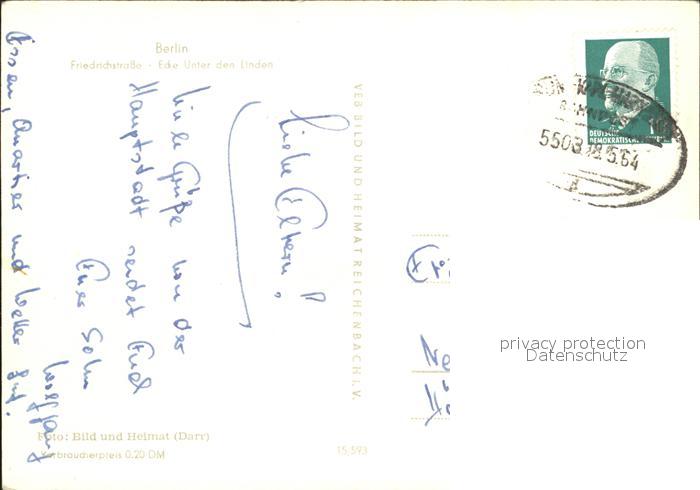 Berlin
Friedrichstraße - Ecke Unter den Linden
Liebe Eltern!
Viele Grüße von der
Hauptstadt sendet Euch
Euer Sohn
Wolfgang
Essen, Quartier und Wetter gut.
VEB BILD UND HEIMAT REICHENBACH I. V.
DEUTSCHE
DEMOKRATISCHE
BAHNPOST
5503 18.5.64
privacy protection
Datenschutz
Foto: Bild und Heimat (Darr)
Verbraucherpreis 0,20 DM
15/593